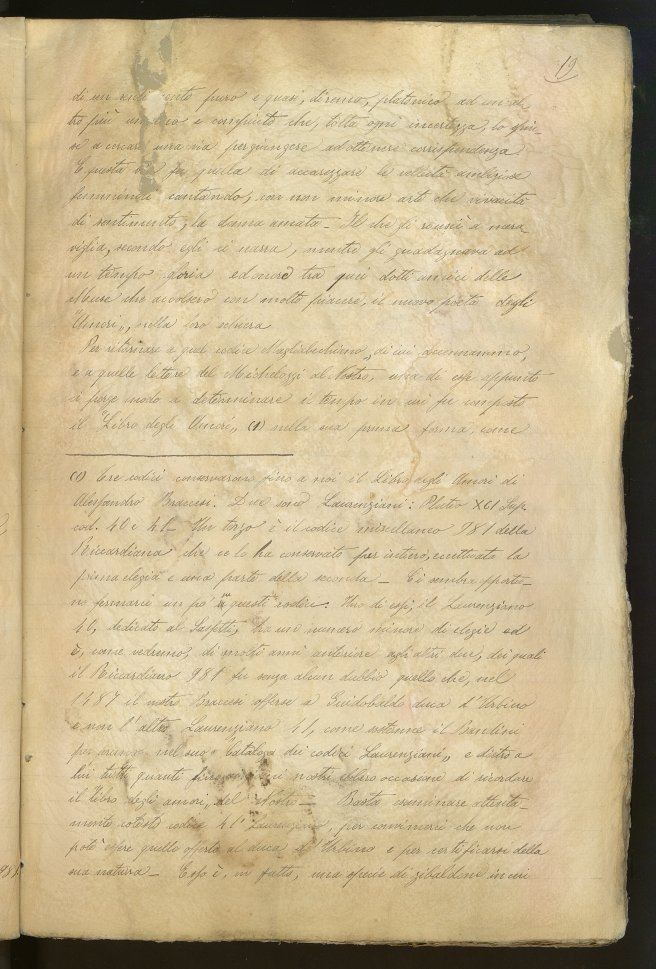 19
di un sentimento puro e quasi, diremo, platonico ad un al-
tro più umano e compiuto che, tolta ogni incertezza, lo spin-
se a cercare una via per giungere ad ottenere corrispondenza.
E questa via fu quella di accarezzare le velleità ambiziose
femminili cantando, con non minore arte che vivacità
di sentimento, la donna amata - Il che gli riuscì a mera
viglia, secondo egli ci narra, mentre gli guadagnava ad
un tempo gloria ed onore tra quei dotti amici delle
Muse che accolsero con molto piacere, il nuovo poeta degli
"Amori", nella loro schiera.
Per ritornare a quel codice Magliabechiano, di cui accennammo,
e a quelle lettere del Michelozzi al Nostro, una di esse appunto
ci porge modo a determinare il tempo in cui fu composto
il "Libro degli Amori" (1) nella sua prima forma, come
(1) Tre codici conservarono fino a noi il Libro degli Amori di
Alessandro Braccesi. Due sono Laurenziani: Pluteo XCI Sup.
cod. 40 e 41 - Un terzo è il codice miscellaneo 981 della
Riccardiana che ce lo ha conservato per intero, eccettuata la
prima elegia e una parte della seconda - Ci sembra opportu-
no fermarci un po' su questi codici. Uno di essi, il Laurenziano
40, dedicato al Sassetti, ha un numero minore di elegie ed
è, come vedremo, di molti anni anteriore agli altri due, dei quali
il Riccardiano 981 fu senza alcun dubbio quello che, nel
1487 il nostro Braccesi offerse a Guidobaldo duca d'Urbino
e non l'altro Laurenziano 41, come ritenne il Bandini
nel suo "Catalogo dei codici Laurenziani" e dietro a
lui tutti quanti nostri ebbero occasione di ricordare
il libro degli amori, del Nostro - Basta esaminare attenta-
mente cotesto codice 41 Laurenziano, per convincersi che non
potè essere quello offerto al duca d'Urbino e per certificarsi della
sua natura - Esso è, in fatto, una specie di zibaldone in cui
981